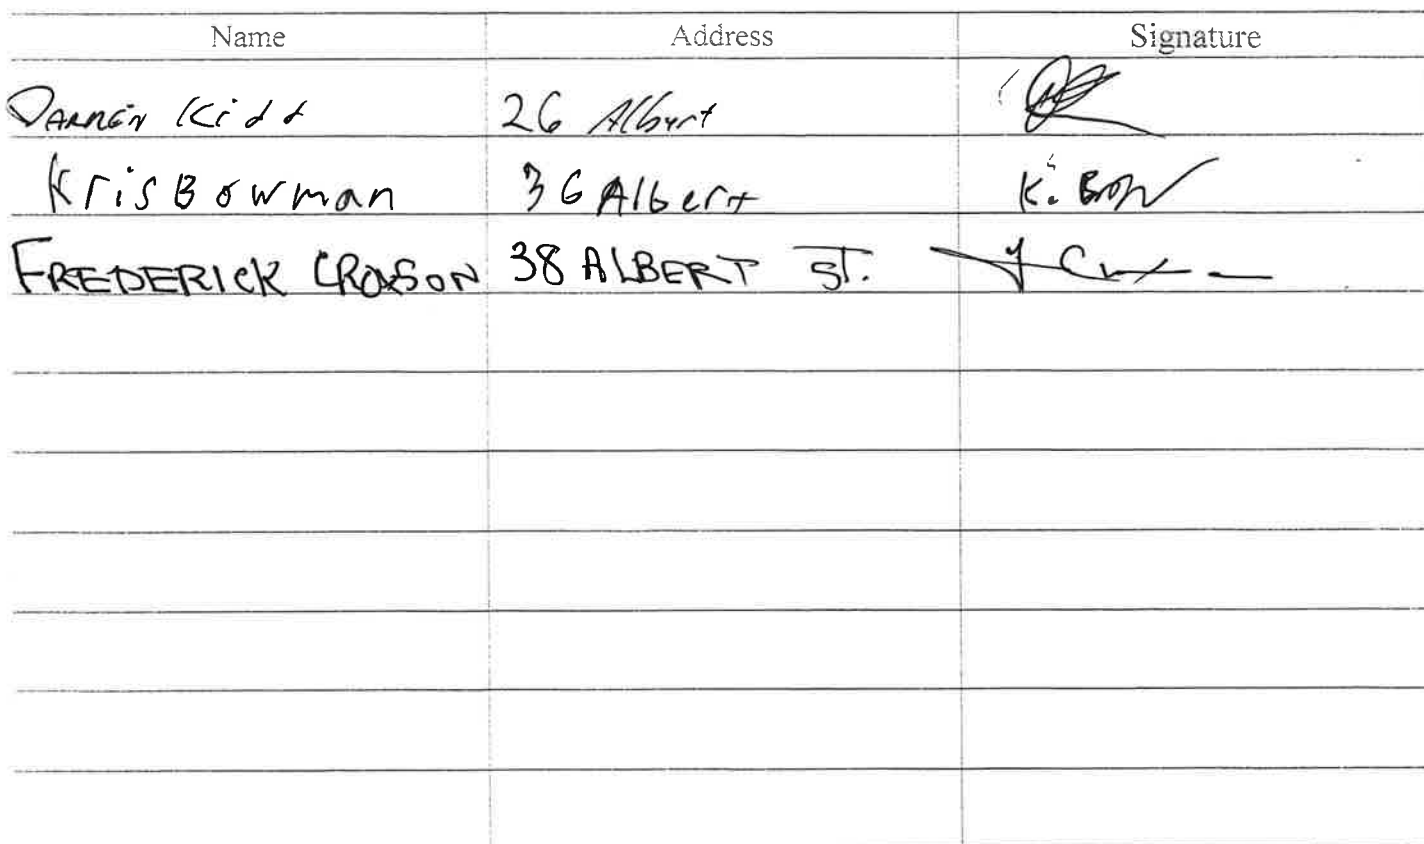 Name Address Signature
DARREN Kidd 26 Albert
Kris Bowman 36 Albert K. Bow
FREDERICK CROXSON 38 ALBERT ST.